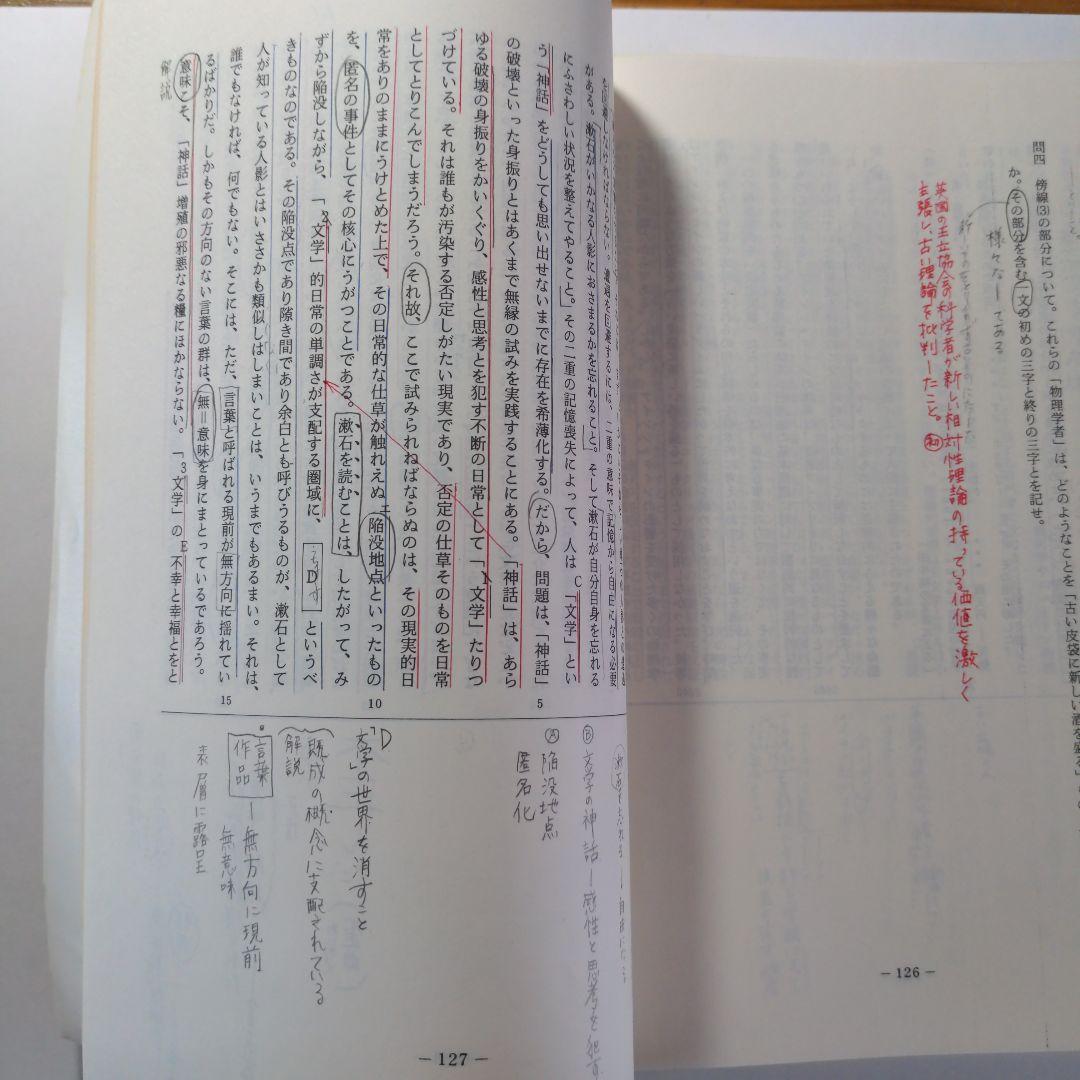 問四　傍線(3)の部分について。これらの「物理学者」は、どのようなことを「古い皮袋に新しい酒を盛る」
か。その部分を含む一文の初めの三字と終りの三字とを記せ。
様々な
である。
英国の王立協会の科学者が新しい相対性理論の持っている価値を激しく
主張し、古い理論を批判したこと。
－126－
がある。漱石がいかなる人影におさまるかを忘れること。そして漱石が自分自身を忘れる
にふさわしい状況を整えてやること。」その二重の記憶喪失によって、人は「文学」とい
C
う「神話」をどうしても思い出せないまでに存在を希薄化する。だから、問題は、「神話」
5
の破壊といった身振りとはあくまで無縁の試みを実践することにある。「神話」は、あら
ゆる破壊の身振りをかいくぐり、感性と思考とを犯す不断の日常として「文学」たりつ
1
づけている。それは誰もが汚染する否定しがたい現実であり、否定の仕草そのものを日常
としてとりこんでしまうだろう。それ故、ここで試みられねばならぬのは、その現実的日
常をありのままにうけとめた上で、その日常的な仕草が触れえぬ陥没地点といったもの
ニ
10
を、匿名の事件としてその核心にうがつことである。漱石を読むことは、したがって、み
ずから陥没しながら、「文学」的日常の単調さが支配する圏域に、　D　というべ
2
きものなのである。その陥没点であり隙き間であり余白とも呼びうるものが、漱石として
人が知っている人影とはいささかも類似しはしまいことは、いうまでもあるまい。それは、
誰でもなければ、何でもない。そこには、ただ、言葉と呼ばれる現前が無方向に揺れてい
15
るばかりだ。しかもその方向のない言葉の群は、無＝意味を身にまとっているであろう。
意味こそ、「神話」増殖の邪悪なる糧にほかならない。「文学」の不幸と幸福とをと
3
E
解説
Ⓑ 文学の神話ー感性と思考を犯す
Ⓐ 陥没地点
匿名化
D
「文学」の世界を消すこと
既成の概念に支配されている
解説
言葉ー無方向に現前
作品　無意味
表層に露呈
－127－